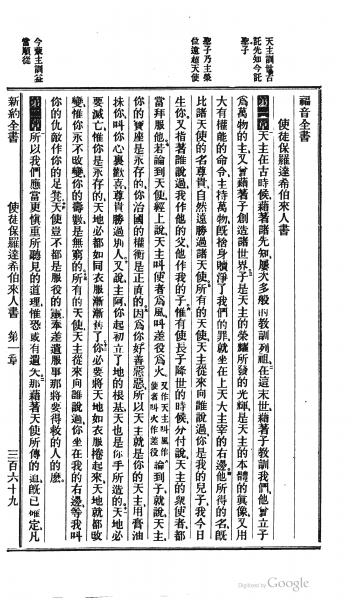 福音全書
使徒保羅達希伯來人書
天主訓誡古
託先知今託
聖子
第一章天主在古時候藉著諸先知屢次多般的教訓列祖在這末世藉著子教訓我們他曾立子
爲萬物的主又曾藉著子創造諸世界子是天主的榮耀所發的光輝是天主的本體的眞像又用
聖子乃主榮
位遠超天使
大有權能的命令主持萬物旣捨身贖淨了我們的罪就坐在上天大主宰的右邊他所得的名旣
比諸天使的名尊貴自然遠勝過諸天使所有的天使天主從來向誰說過你是我的兒子我今日
生你又指著誰說過我作他的父他作我的子惟有使長子降世的時候分付說天主的衆使者都
當拜服他若論到天使經上說天主叫使者爲風叫差役爲火又作天主叫風作使者叫火作差役論到子就說天主
你的寶座是永存的你治國的權衡是正直的因爲你好善惡惡所以天主就是你的天主用膏油
抹你叫你心裏歡喜尊貴勝過別人又說主阿你起初立了地的根基天也是你手所造的天地必
要滅亡惟你是永存的天地必都如同衣服漸漸舊了你必要將天地如衣服捲起來天地就都改
變惟你永不改變你的壽數是無窮的所有的天使天主從來向誰說過你坐在我的右邊等我叫
你的仇敵作你的足凳天使豈不都是服役的靈奉差遣服事那將要得救的人的麽
今蒙主訓益
當順從
第二章所以我們應當更愼重所聽見的道理惟恐或有遺失那藉著天使所傳的道旣已確定凡
新約全書 使徒保羅達希伯來人書 第一章 三百六十九
Digitized by Google